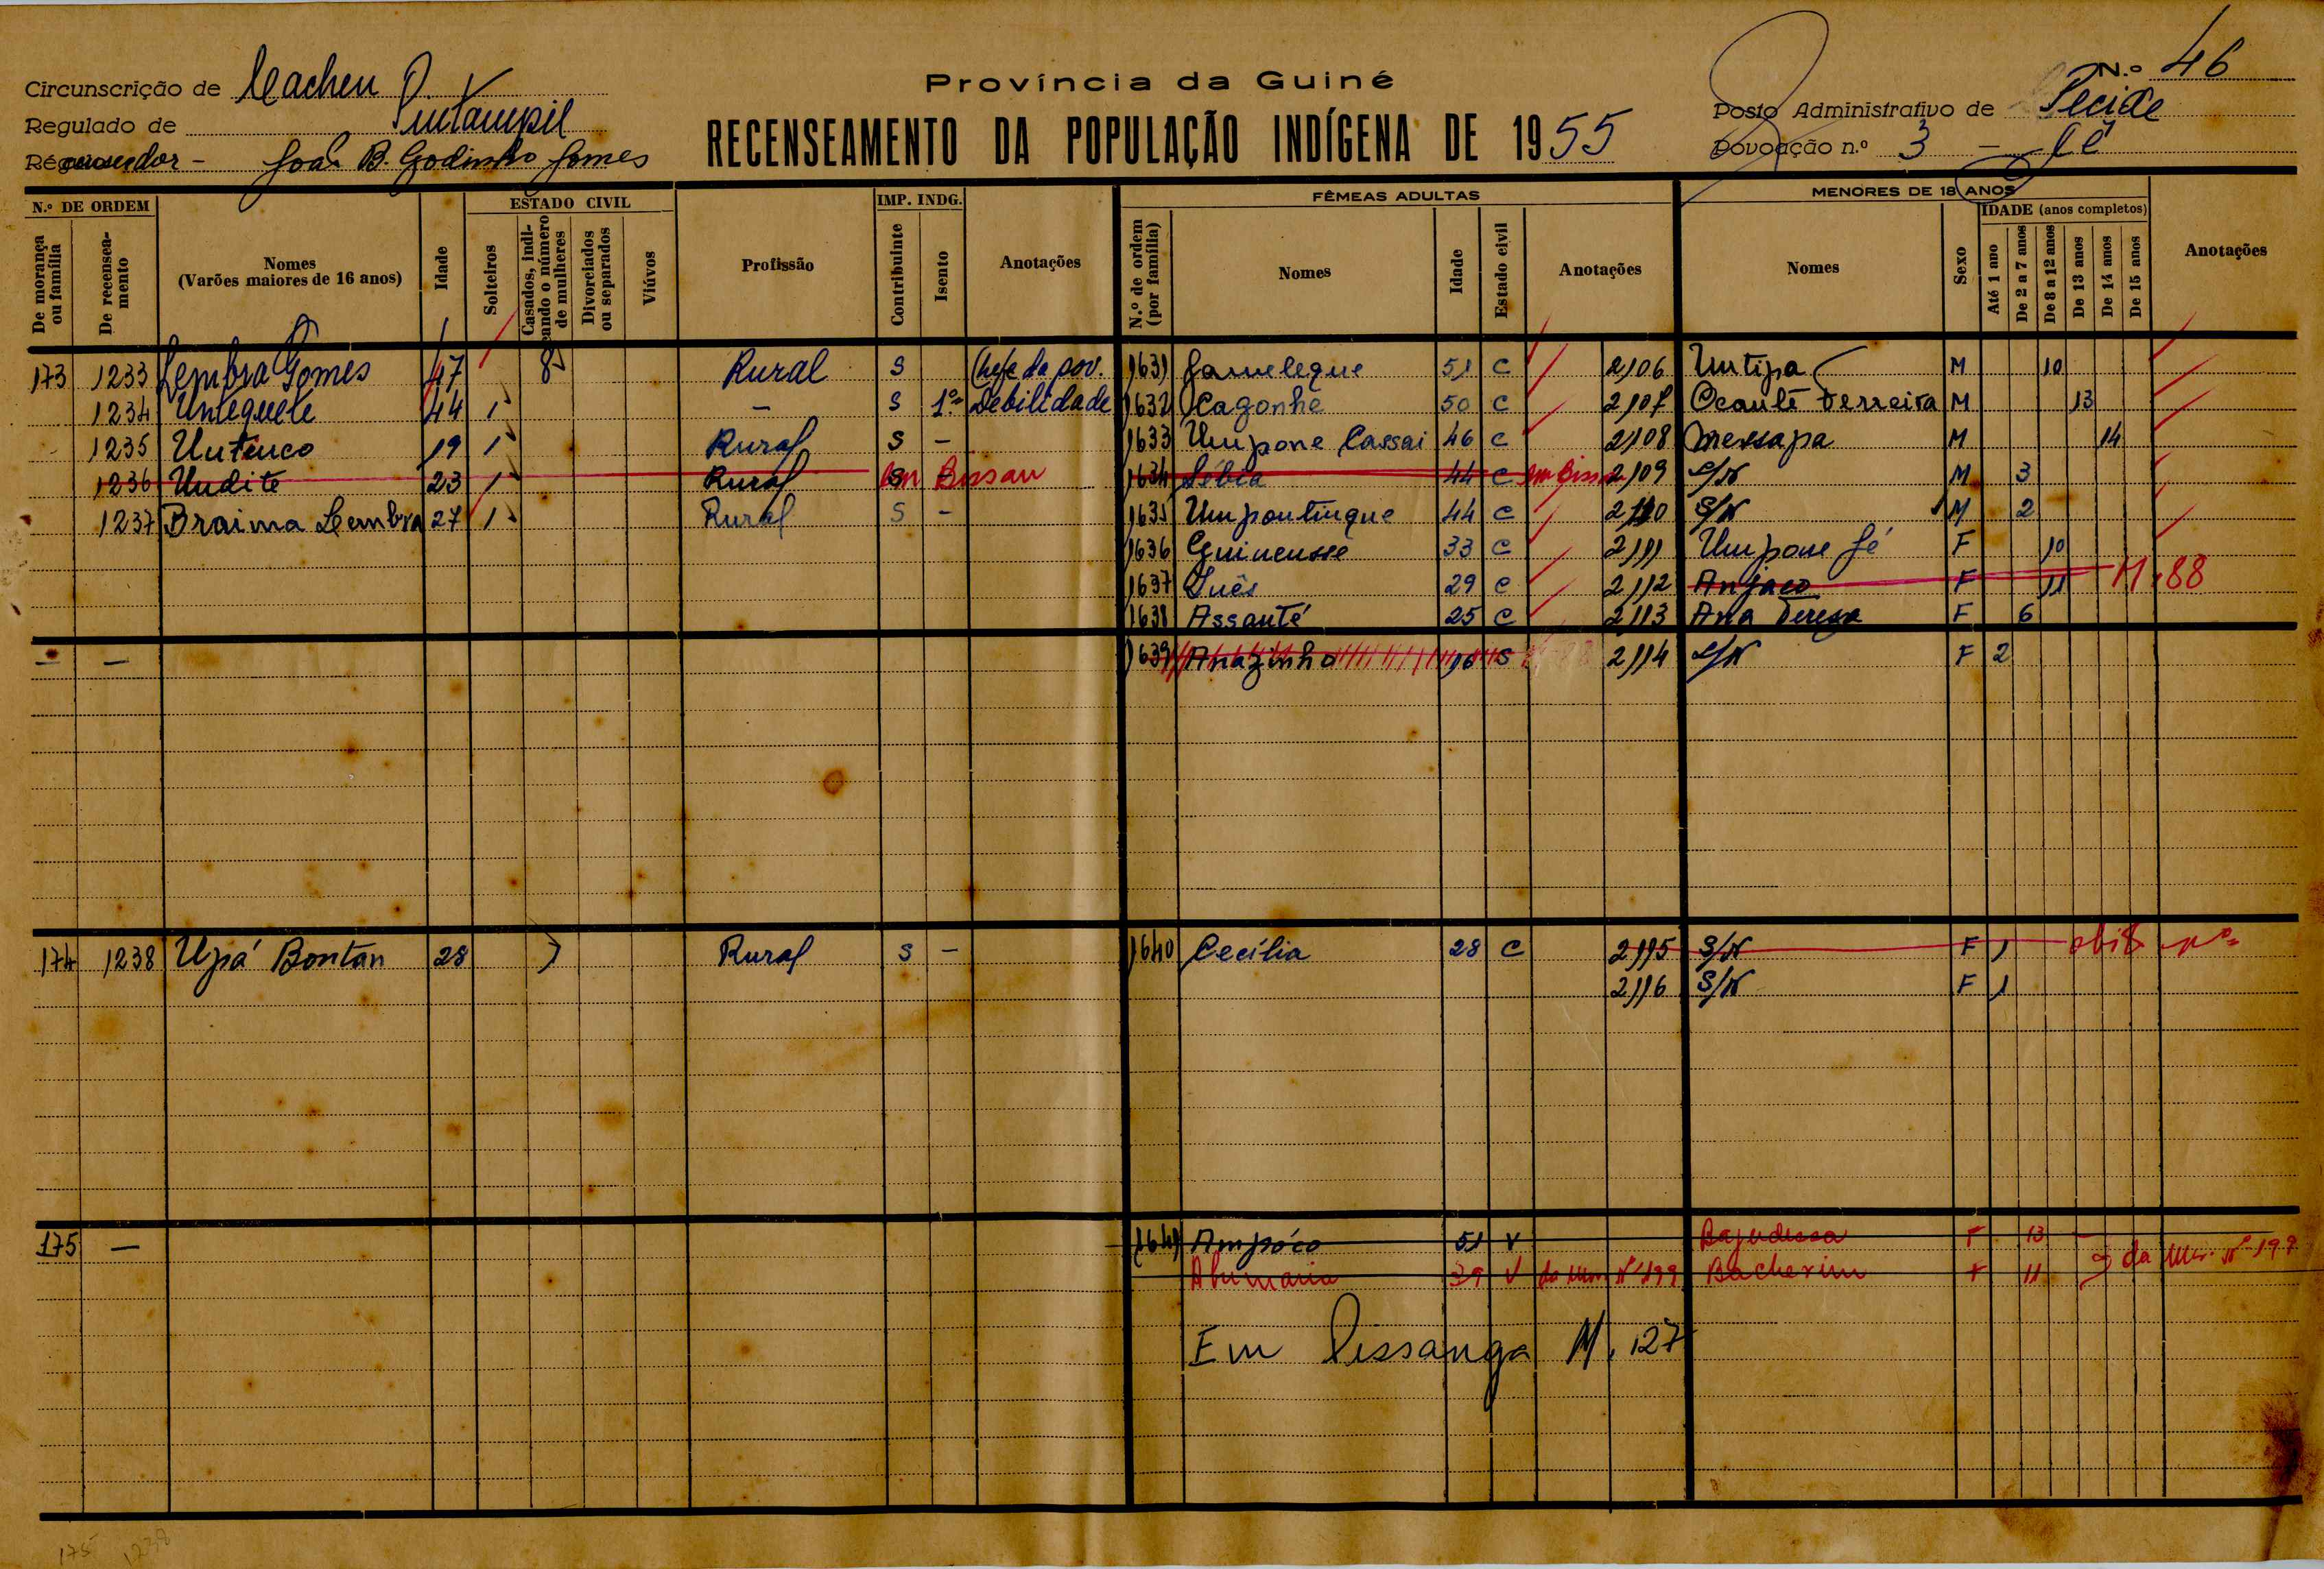 N.º 46
Circunscrição de Cacheu
Província da Guiné
Posto Administrativo de Pecixe
Regulado de Puntampil
RECENSEAMENTO DA POPULAÇÃO INDÍGENA DE 1955
Povoação n.º 3 -
Recenseador - João B. Godinho Gomes
N.º DE ORDEM
De morança ou família
De recenseamento
Nomes
(Varões maiores de 16 anos)
Idade
ESTADO CIVIL
Solteiros
Casados, indicando o número de mulheres
Divorciados ou separados
Viúvos
Profissão
IMP. INDG.
Contribuinte
Isento
Anotações
FÊMEAS ADULTAS
N.º de ordem (por família)
Nomes
Idade
Estado civil
Anotações
MENORES DE 18 ANOS
Nomes
Sexo
IDADE (anos completos)
Até 1 ano
De 2 a 7 anos
De 8 a 12 anos
De 13 anos
De 14 anos
De 15 anos
Anotações
173 1233 Lembra Gomes 47 8 Rural S Chefe da pov. 1631 51 C 2106 Untipa M 10
1234 Untequete 44 1 - S 1º Debilidade 1632 Cagonhe 50 C 2107 Ocante Ferreira M 13
1235 Untinco 19 1 Rural S - 1633 Umpone Cassai 46 C 2108 Messapa M 14
1236 Undite 23 1 Rural S Em Bissau 1634 Sébia 44 C em Biss 2109 S/N M 3
1237 Braima Lembra 27 1 Rural S - 1635 Umpontinque 44 C 2110 S/N M 2
1636 Guineusse 33 C 2111 Umpone Jé F 10
1637 Inês 29 C 2112 Anjaco F 11 M. 88
1638 Assanté 25 C 2113 Ana Teresa F 6
- - 1639 Anazinha 16 S 2114 S/N F 2
174 1238 Upá Bontan 28 1 Rural S - 1640 Cecília 28 C 2115 S/N F 1
2116 S/N F 1
175 - 1641 Ampóco 51 V F 13
Abumaria 39 V da Mor. Nº 199 Bacherim F 11 da Mor. Nº 199
Em Pissanga M. 127
175 1238